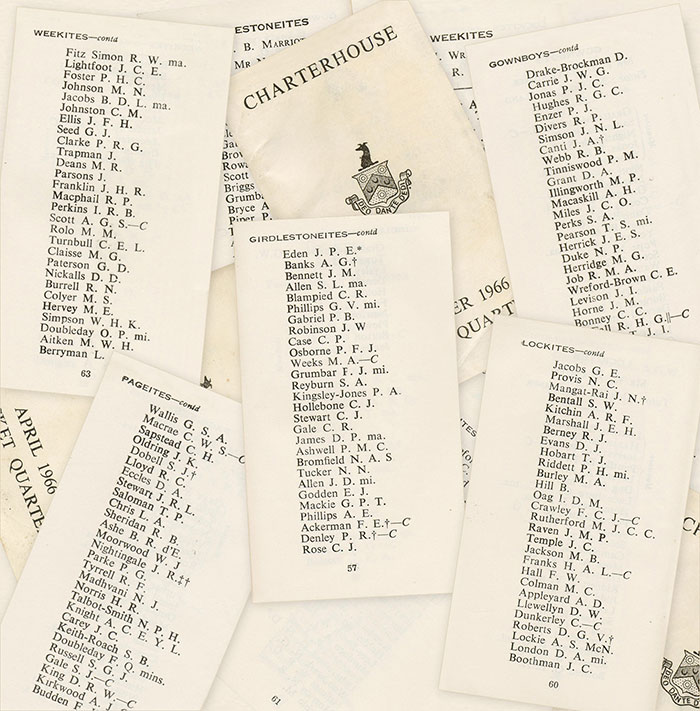 WEEKITES—contd
Fitz Simon R. W. ma.
Lightfoot J. C. E.
Foster P. H. C.
Johnson M. N.
Jacobs B. D. L. ma.
Johnston C. M.
Ellis J. F. H.
Seed G. J.
Clarke P. R. G.
Trapman J.
Deans M. R.
Parsons J.
Franklin J. H. R.
Macphail R. P.
Perkins I. R. B.
Scott A. G. S.—C
Rolo M. M.
Turnbull C. E. L.
Claisse M. G.
Paterson G. D.
Nickalls D. D.
Burrell R. N.
Colyer M. S.
Hervey M. E.
Simpson W. H. K.
Doubleday O. P. mi.
Aitken M. W. H.
Berryman L.
63
LESTONEITES
B. MARRIOT
MR
Scott
Briggs
Grumba
Bryce A
Piper P.
CHARTERHOUSE
DEO DANTE DEDI
ER 1966
QUART
WEEKITES
GOWNBOYS—contd
Drake-Brockman D.
Carrie J. W. G.
Jonas P. J. C.
Hughes R. G. C.
Enzer P. J.
Divers R. P.
Simson J. N. L.
Canti J. A.†
Webb R. B.
Tinniswood P. M.
Grant D. A.
Illingworth M. P.
Macaskill A. H.
Miles J. C. O.
Perks S. A.
Pearson T. S. mi.
Herrick J. E. S.
Duke N. P.
Herridge M. G.
Job R. M. A.
Wreford-Brown C. E.
Levison J. I.
Horne J. M.
Bonney C. C.
ll R. H. G.||—C
GIRDLESTONEITES—contd
Eden J. P. E.*
Banks A. G.†
Bennett J. M.
Allen S. L. ma.
Blampied C. R.
Phillips G. V. mi.
Gabriel P. B.
Robinson J. W
Case C. P.
Osborne P. F. J.
Weeks M. A.—C
Grumbar F. J. mi.
Reyburn S. A.
Kingsley-Jones P. A.
Hollebone C. J.
Stewart C. J.
Gale C. R.
James D. P. ma.
Ashwell P. M. C.
Bromfield N. A. S
Tucker N. N.
Allen J. D. mi.
Godden E. J.
Mackie G. P. T.
Phillips A. E.
Ackerman F. E.†—C
Denley P. R.†—C
Rose C. J.
57
LOCKITES—contd
Jacobs G. E.
Provis N. C.
Mangat-Rai J. N.†
Bentall S. W.
Kitchin A. R. F.
Marshall J. E. H.
Berney R. J.
Evans D. J.
Hobart T. J.
Riddett P. H. mi.
Burley M. A.
Hill B.
Oag I. D. M.
Crawley F. C. J.—C
Rutherford M. J. C. C.
Raven J. M. P.
Temple J. C.
Jackson M. B.
Franks H. A. L.—C
Hall F. W.
Colman M. C.
Appleyard A. D.
Llewellyn D. W.
Dunkerley C.—C
Roberts D. G. V.†
Lockie A. S. McN.
London D. A. mi.
Boothman J. C.
60
PAGEITES—contd
Wallis G. S. A.
Macrae C. W. S.—C
Sapstead C. H.
Oldring J. K.
Dobell S. J.†
Lloyd R. C.
Eccles D. A.
Stewart J. R. L.
Saloman T. P.
Chris L. A.
Sheridan R. B.
Ashe B. R. d'E.
Moorwood W. J
Nightingale J. R.‡†
Parke P. G.
Tyrrell R. F.
Madhvani N. J.
Norris H. R.
Talbot-Smith N. P. H.
Knight A. C. E. Y. L.
Carey J. C.
Keith-Roach S. B.
Doubleday F. Q. mins.
Russell S. G. J.
Gale S. J.—C
King D. R. W.—C
Kirkwood A. J.
Budden F.
APRIL 1966
KET QUARTE
61